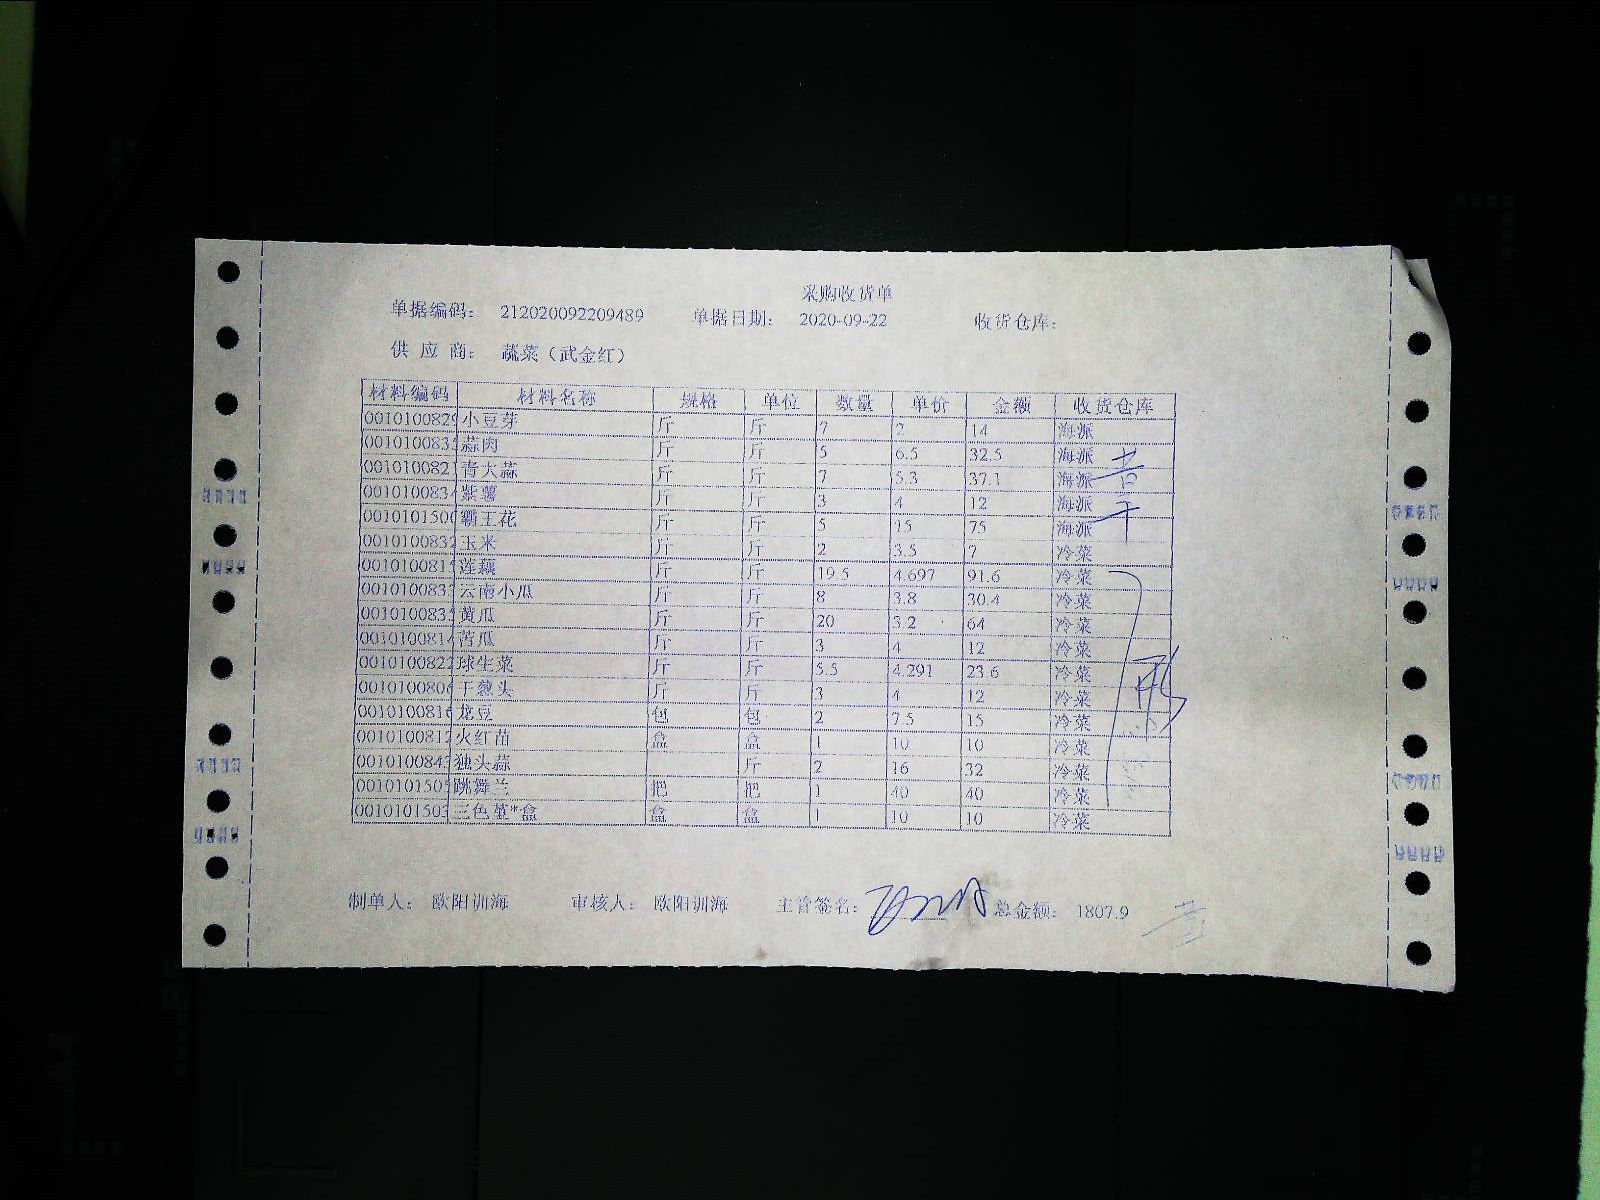 采购收货单
单据编码： 212020092209489 单据日期： 2020-09-22 收货仓库：
供 应 商： 蔬菜（武金红）
材料编码 材料名称 规格 单位 数量 单价 金额 收货仓库
0010100829 小豆芽 斤 斤 7 2 14 海派
001010083 蒜肉 斤 斤 5 6.5 32.5 海派
001010082 青大蒜 斤 斤 7 5.3 37.1 海派
001010083 紫薯 斤 斤 3 4 12 海派
001010150 霸王花 斤 斤 5 15 75 海派
0010100832 玉米 斤 斤 2 3.5 7 冷菜
001010081 莲藕 斤 斤 19.5 4.697 91.6 冷菜
001010083 云南小瓜 斤 斤 8 3.8 30.4 冷菜
001010083 黄瓜 斤 斤 20 3.2 64 冷菜
001010081 苦瓜 斤 斤 3 4 12 冷菜
0010100822 球生菜 斤 斤 5.5 4.291 23.6 冷菜
001010080 干葱头 斤 斤 3 4 12 冷菜
001010081 龙豆 包 包 2 7.5 15 冷菜
001010081 火红苗 盒 盒 1 10 10 冷菜
001010084 独头蒜 斤 2 16 32 冷菜
001010150 跳舞兰 把 把 1 40 40 冷菜
001010150 三色堇*盒 盒 盒 1 10 10 冷菜
制单人： 欧阳训海 审核人： 欧阳训海 主管签名： 总金额： 1807.9